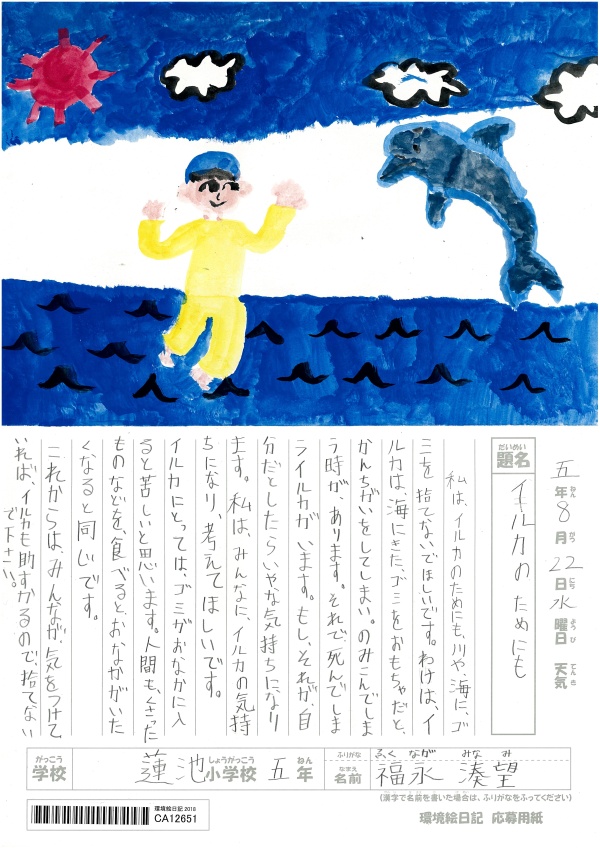 五年8月22日水曜日 天気
ねん がつ にち ようび てんき
だいめい
題名 イルカのためにも
私は、イルカのためにも、川や、海に、ゴ
ミを捨てないでほしいです。わけは、イ
ルカは、海にきた、ゴミをおもちゃだと、
かんちがいをしてしまい、のみこんでしま
う時が、あります。それで、死んでしま
うイルカが、います。もし、それが、自
分だとしたらいやな気持ちになり
ます。私は、みんなに、イルカの気持
ちになり、考えてほしいです。
イルカにとっては、ゴミがおなかに入
ると苦しいと思います。人間も、くさった
ものなどを、食べるとおなかがいた
くなると同じです。
これからは、みんなが、気をつけて
いれば、イルカも助すかるので、捨てない
で下さい。
がっこう しょうがっこう ねん
学校 蓮池小学校 五年
ふりがな ふくなが みなみ
なまえ
名前 福永 湊望
(漢字で名前を書いた場合は、ふりがなをふってください)
環境絵日記 2018
CA12651
環境絵日記 応募用紙